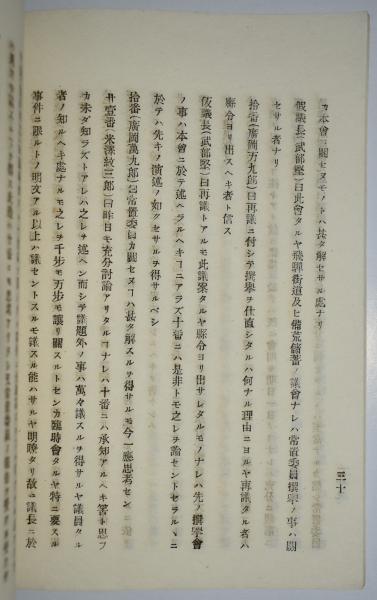 カ本會ニ關セヌモノトハ甚タ解セサル處ナリ
假議長(武部堅)曰此會タルヤ飛驒街道及ヒ備荒儲蓄ノ議會ナレハ常置委員撰擧ノ事ハ關
セサル者ナリ
拾番(廣岡万九郎)曰再議ニ付シテ撰擧ヲ仕直シタルハ何ナル理由ニヨルヤ再議タル者ハ
縣令ヨリ出スヘキ者ト信ス
假議長(武部堅)曰再議トアルモ此議案タルヤ縣令ヨリ出サレタルモノナレハ先ノ撰擧會
ノ事ハ本會ニ於テ述ヘラルヘキヿニアラズ十番ニハ是非トモ之レヲ論セントセラルヽニ
於テハ先キノ演述ノ如クセサルヲ得サルベシ
拾番(廣岡萬九郎)曰常置委員カ關セヌヿハ甚タ解スルヲ得サルモ今一應思考セン
廿壹番(米澤紋三郎)曰昨日モ充分討論アリタルヿナレハ十番ニハ承知アルヘキ筈ト思フ
カ未タ知ラズトアレハ之レヲ述ヘン而シテ議題外ノ事ハ萬々議スルヲ得サルヤ議員タル
者ノ知ルヘキ處ナルモ之レヲ千步モ万步モ讓リ關スルトセンカ臨時會タルヤ特ニ要スル
事件ニ限ルトノ明文アル以上ハ議セントスルモ議スル能ハサルヤ明瞭タリ故ニ議長ニ於
三十